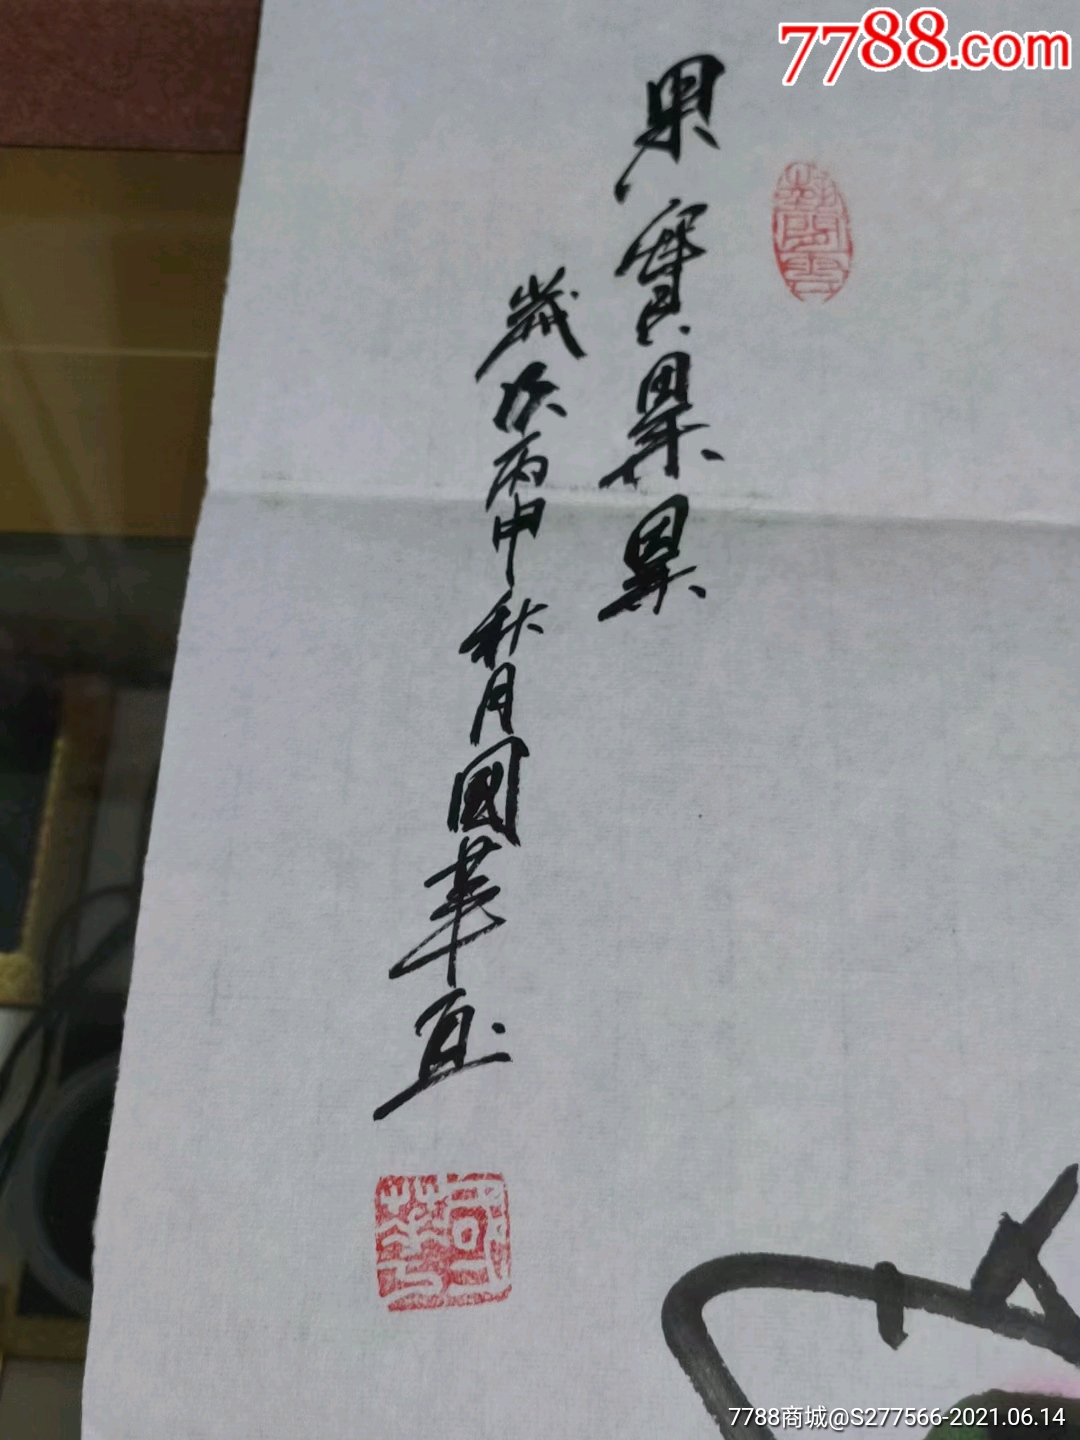 7788.com
果實累累
歲次丙申秋月國華画
國華
7788商城@S277566-2021.06.14